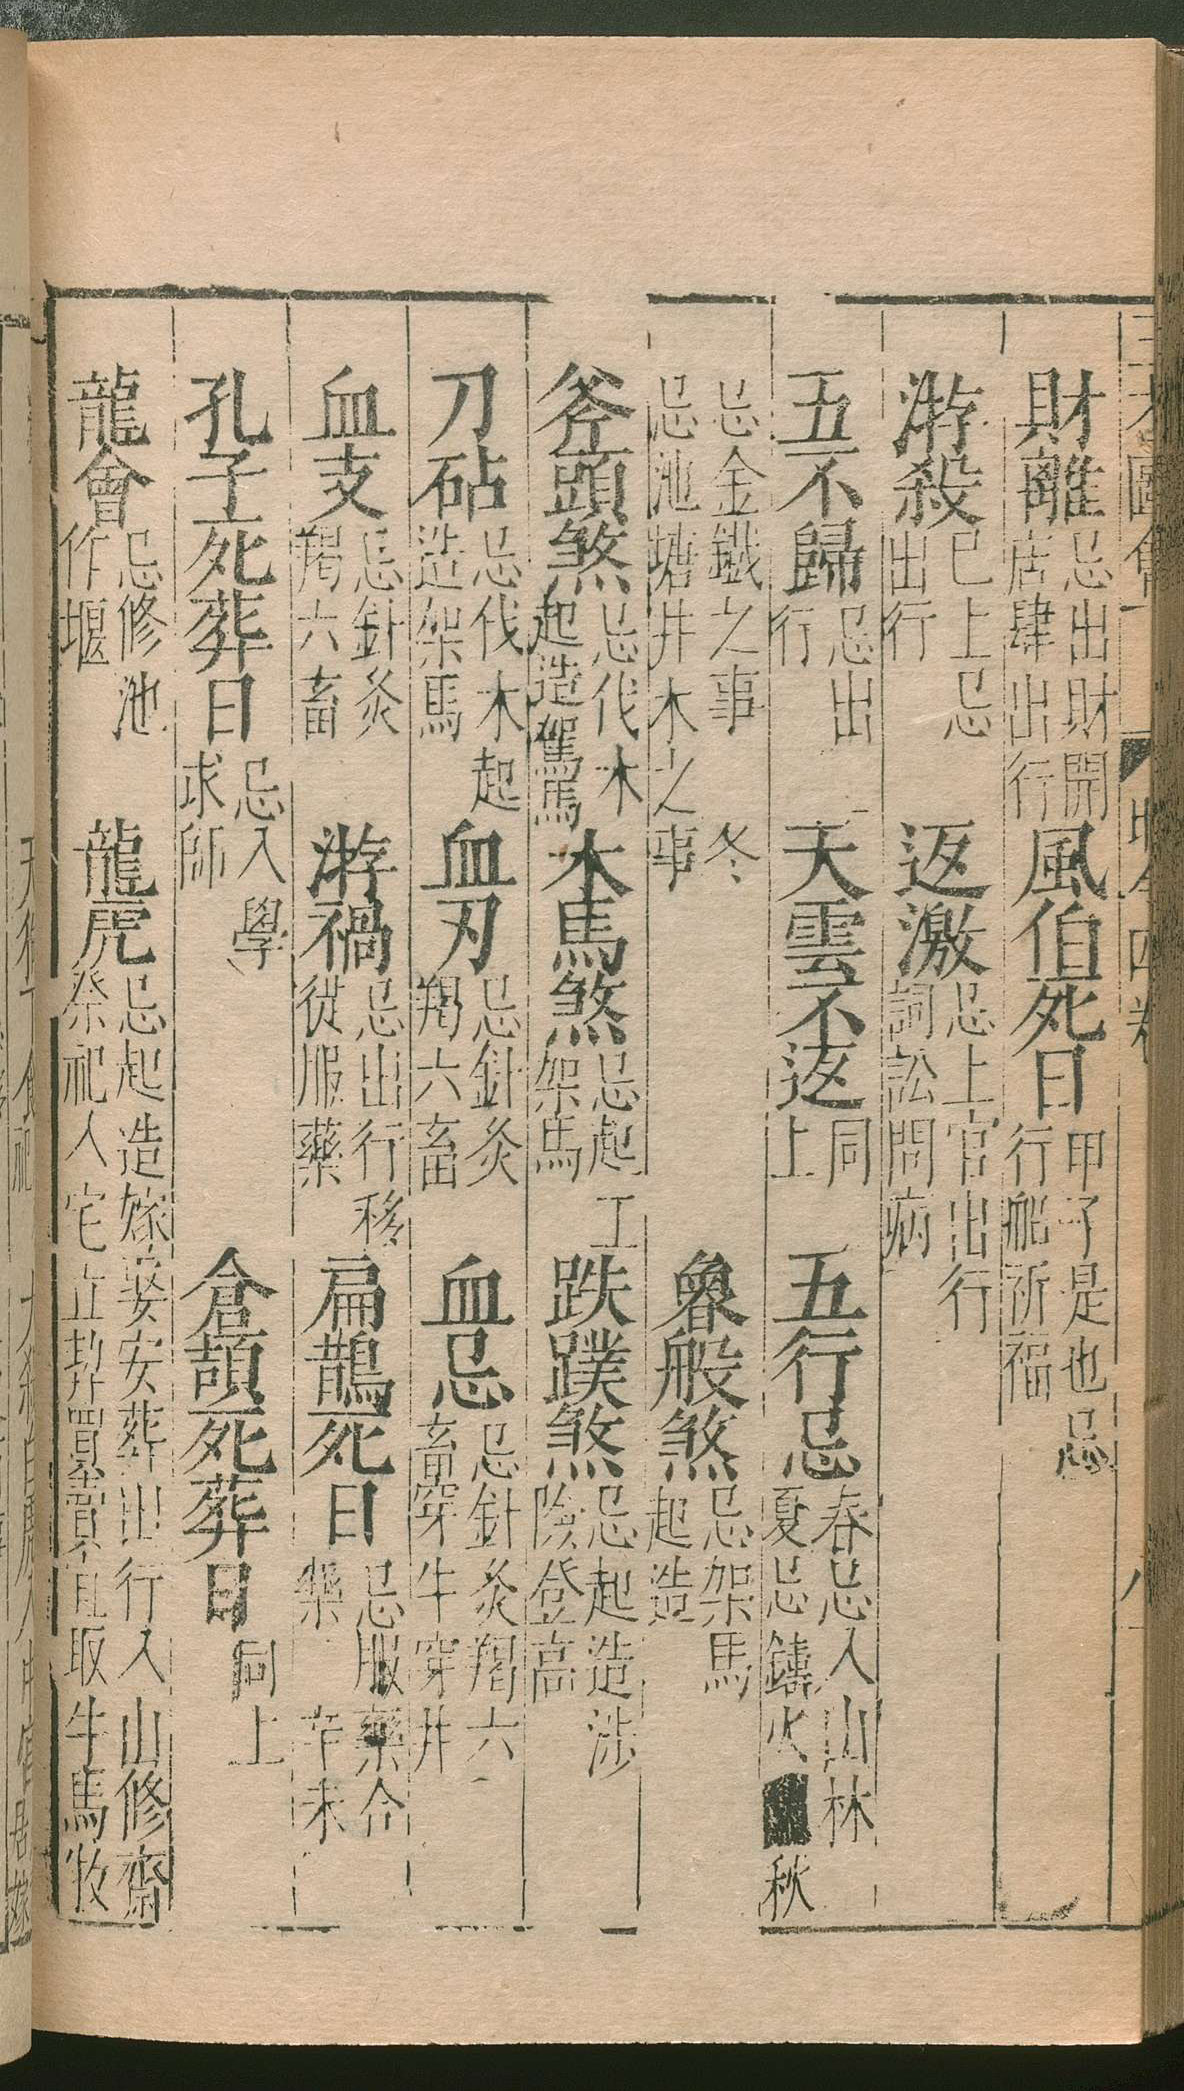 財離忌出財開店肆出行風伯死日甲子是也忌行船祈福
游殺已上忌出行返激忌上官出行詞訟問病
五不歸忌出行天雲不返同上五行忌春忌入山林夏忌鑄火秋
忌金鐵之事冬忌池塘井木之事魯般煞忌架馬起造
斧頭煞忌伐木起造駕馬木馬煞忌起工架馬跌蹼煞忌起造涉險登高
刀砧忌伐木起造架馬血刃忌針灸羯六畜血忌忌針灸羯六畜穿牛穿井
血支忌針灸羯六畜游禍忌出行移徙服藥扁鵲死日忌服藥合藥辛未
孔子死葬日忌入學求師倉頡死葬日同上
龍會忌修池作堰龍虎忌起造嫁娶安葬出行入山修齋祭祀人宅立契買賣宜取牛馬牧